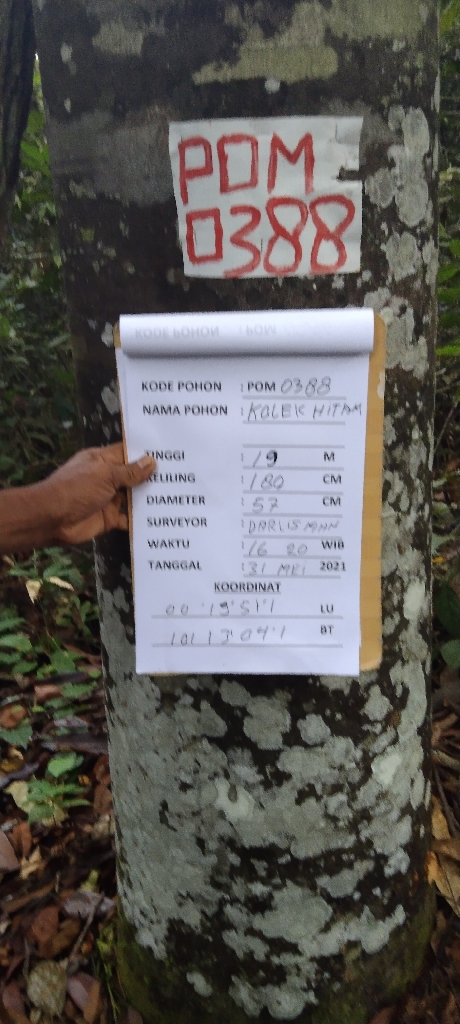 POM
0388
KODE POHON : POM 0388
NAMA POHON : KOLEK HITAM
TINGGI : 19 M
KELILING : 180 CM
DIAMETER : 57 CM
SURVEYOR : DARLISMAN
WAKTU : 16 20 WIB
TANGGAL : 31 MEI 2021
KOORDINAT
00°19'51"1 LU
101 13'04"1 BT